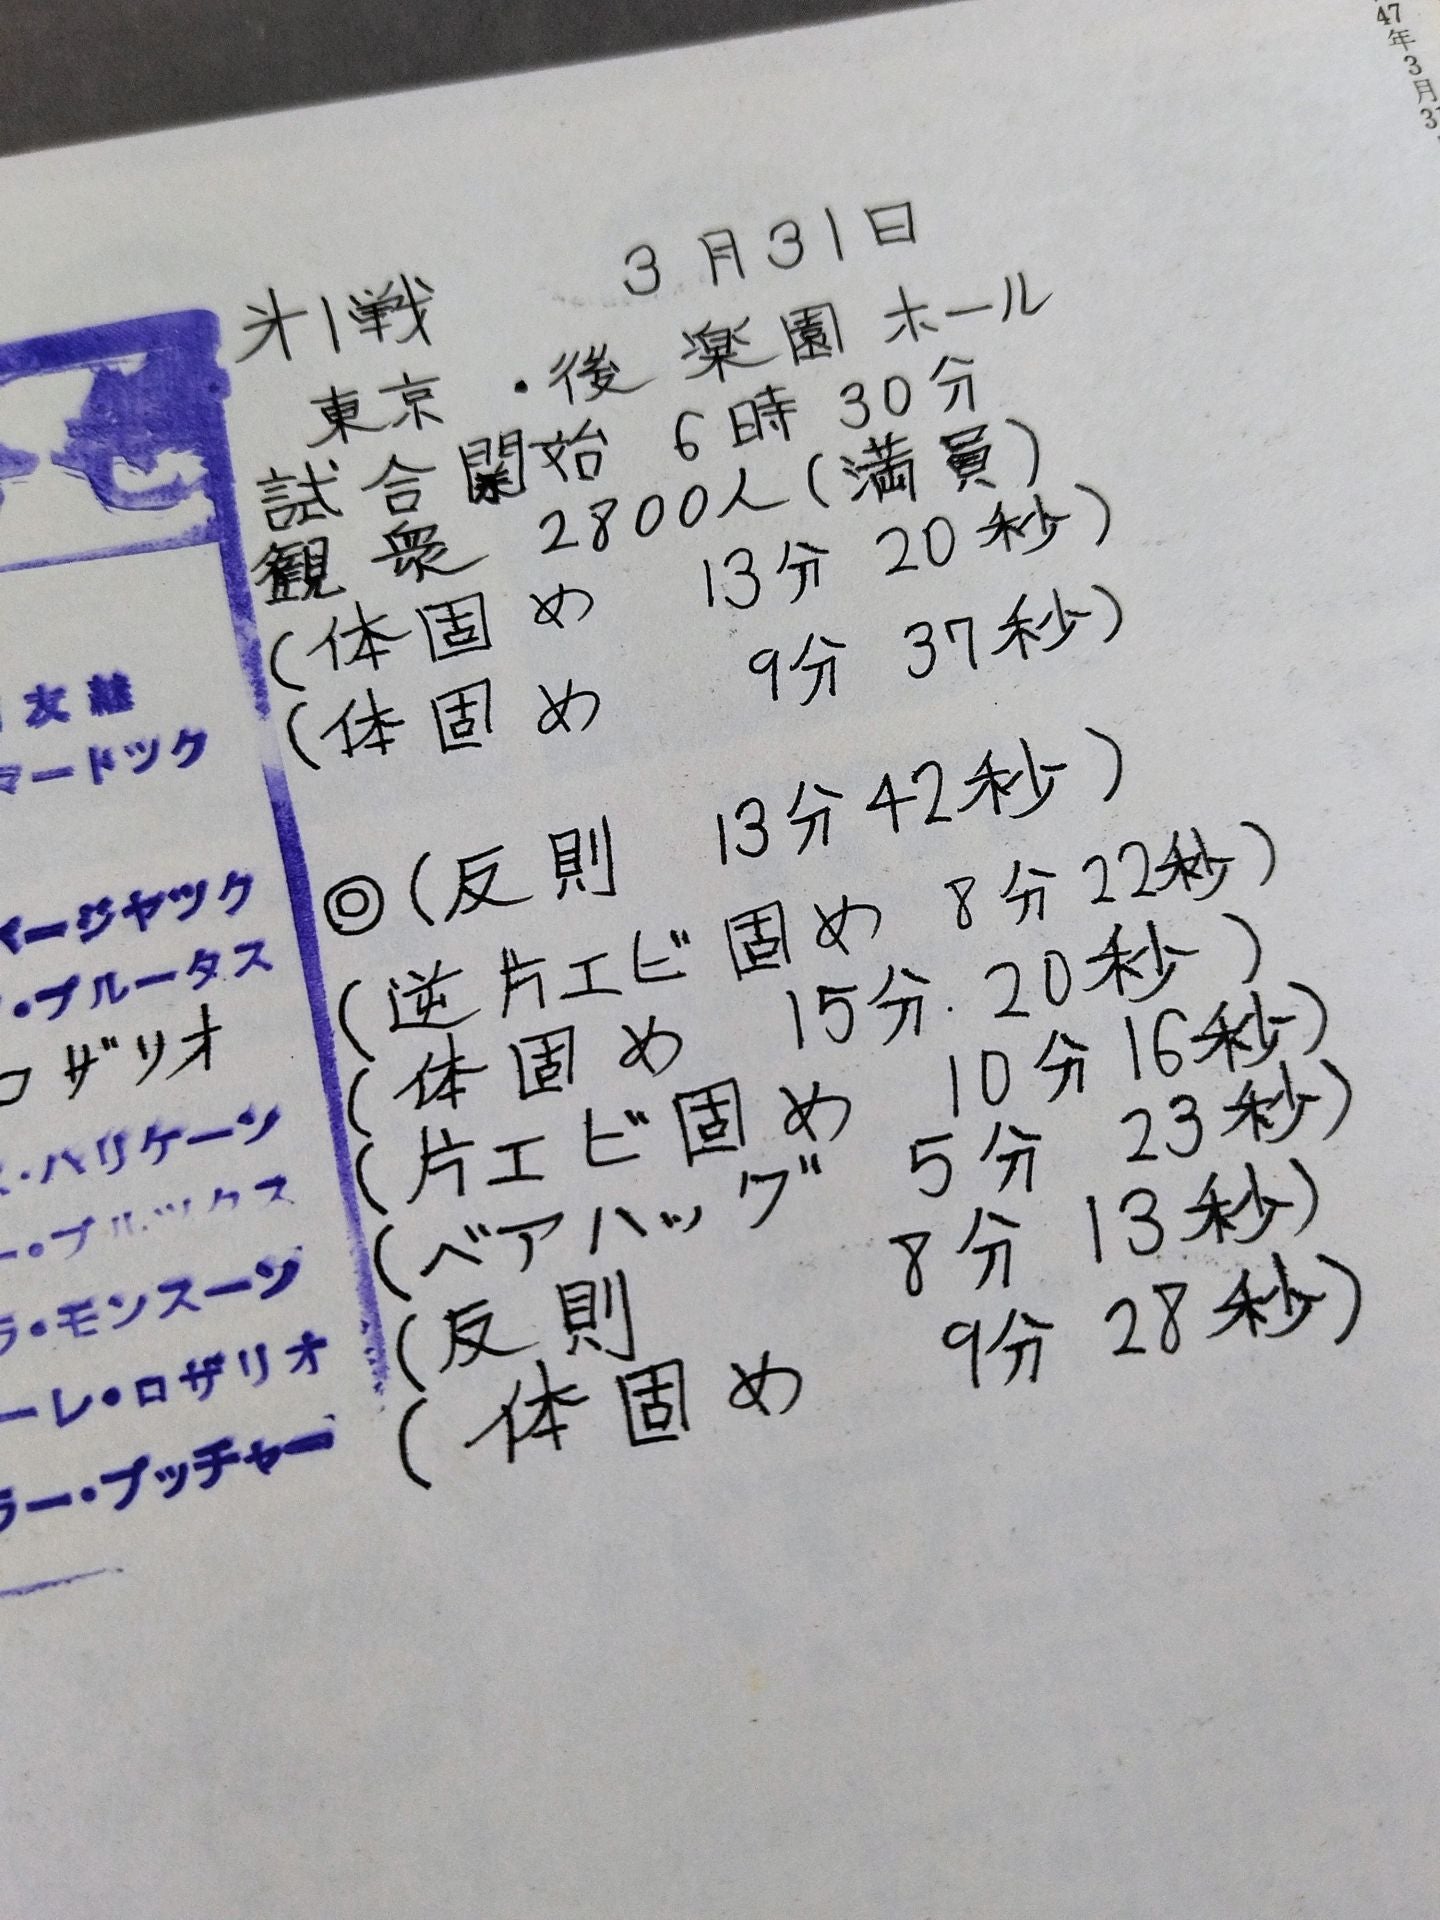 47年3月3
オ1戦 3月31日
東京・後楽園ホール
試合開始 6時30分
観衆 2800人(満員)
(体固め 13分20秒)
(体固め 9分37秒)
◎(反則 13分42秒)
(逆片エビ固め 8分22秒)
(体固め 15分.20秒)
(片エビ固め 10分16秒)
(ベアハッグ 5分23秒)
(反則 8分13秒)
(体固め 9分28秒)
友雄
マードック
バージャック
・ブルータス
ロザリオ
ス・ハリケーン
ー・ブルックス
ラ・モンスーン
ーレ・ロザリオ
ラー・ブッチャー